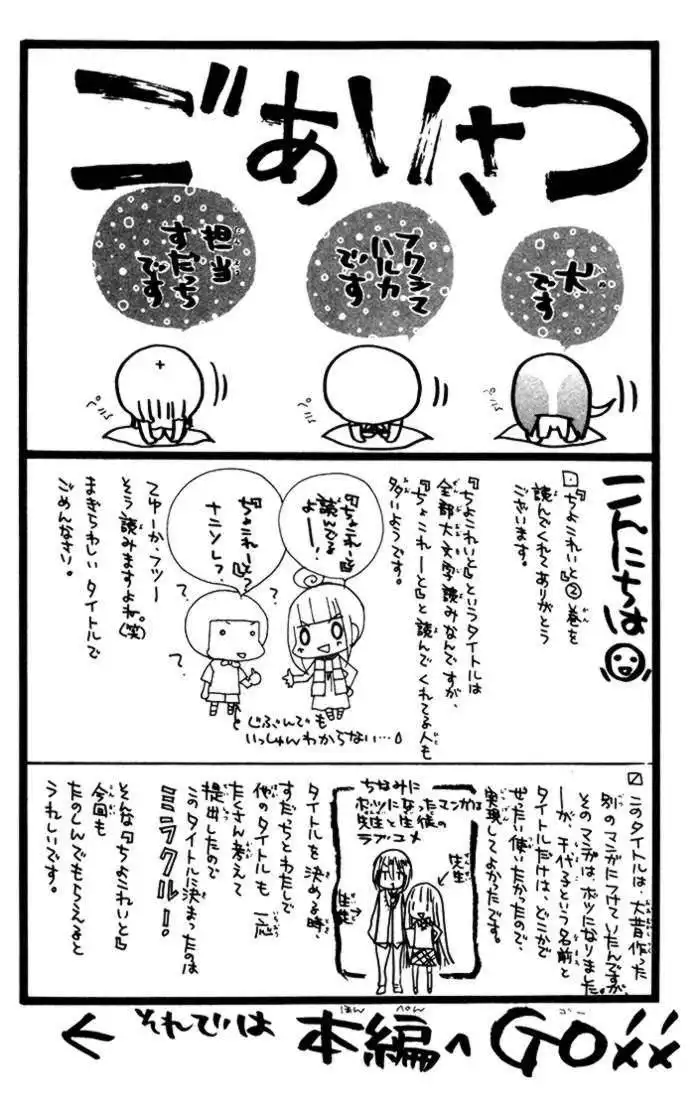 ごあいさつ
犬
です
フクシマ
ハルカ
です
担当
すだっち
です
ペコ
ペコ
ペコ
こんにちは
『ちょこれいと』②巻を
読んでくれてありがとう
ございます。
『ちょこれいと』というタイトルは
全部大文字読みなんですが、
『ちょこれーと』と読んでくれてる人も
多いようです。
『ちょこれーと』
読んでる
よー!
『ちょこれーと』?
ナニソレ?
じぶんでも
いっしゅんわからない…
てゆーか、フツー
そう読みますよね。(笑)
まぎらわしいタイトルで
ごめんなさい。
このタイトルは、大昔作った
別のマンガにつけていたんですが、
そのマンガは、ボツになりました。
が、千代子という名前と
タイトルだけは、どこかで
ぜったい使いたかったので、
実現してよかったです。
ちなみに
ボツになったマンガは
先生と生徒の
ラブコメ
先生
生徒
タイトルを決める時、
すだっちとわたしで
他のタイトルも一応
たくさん考えて
提出したので
このタイトルに決まったのは
ミラクルー!
そんな『ちょこれいと』
今回も
たのしんでもらえると
うれしいです。
← それでは 本編へGO!!